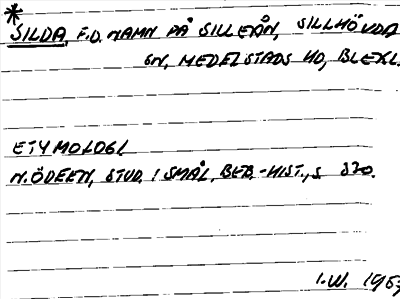 *
SILDA, F.D. NAMN PÅ SILLEÅN, SILLHÖVDA
SN, MEDELSTADS HD, BLEKI.
ETYMOLOGI
N. ÖDEEN, STUD. I SMÅL. BEB.-HIST., S. 320.
I.W. 196